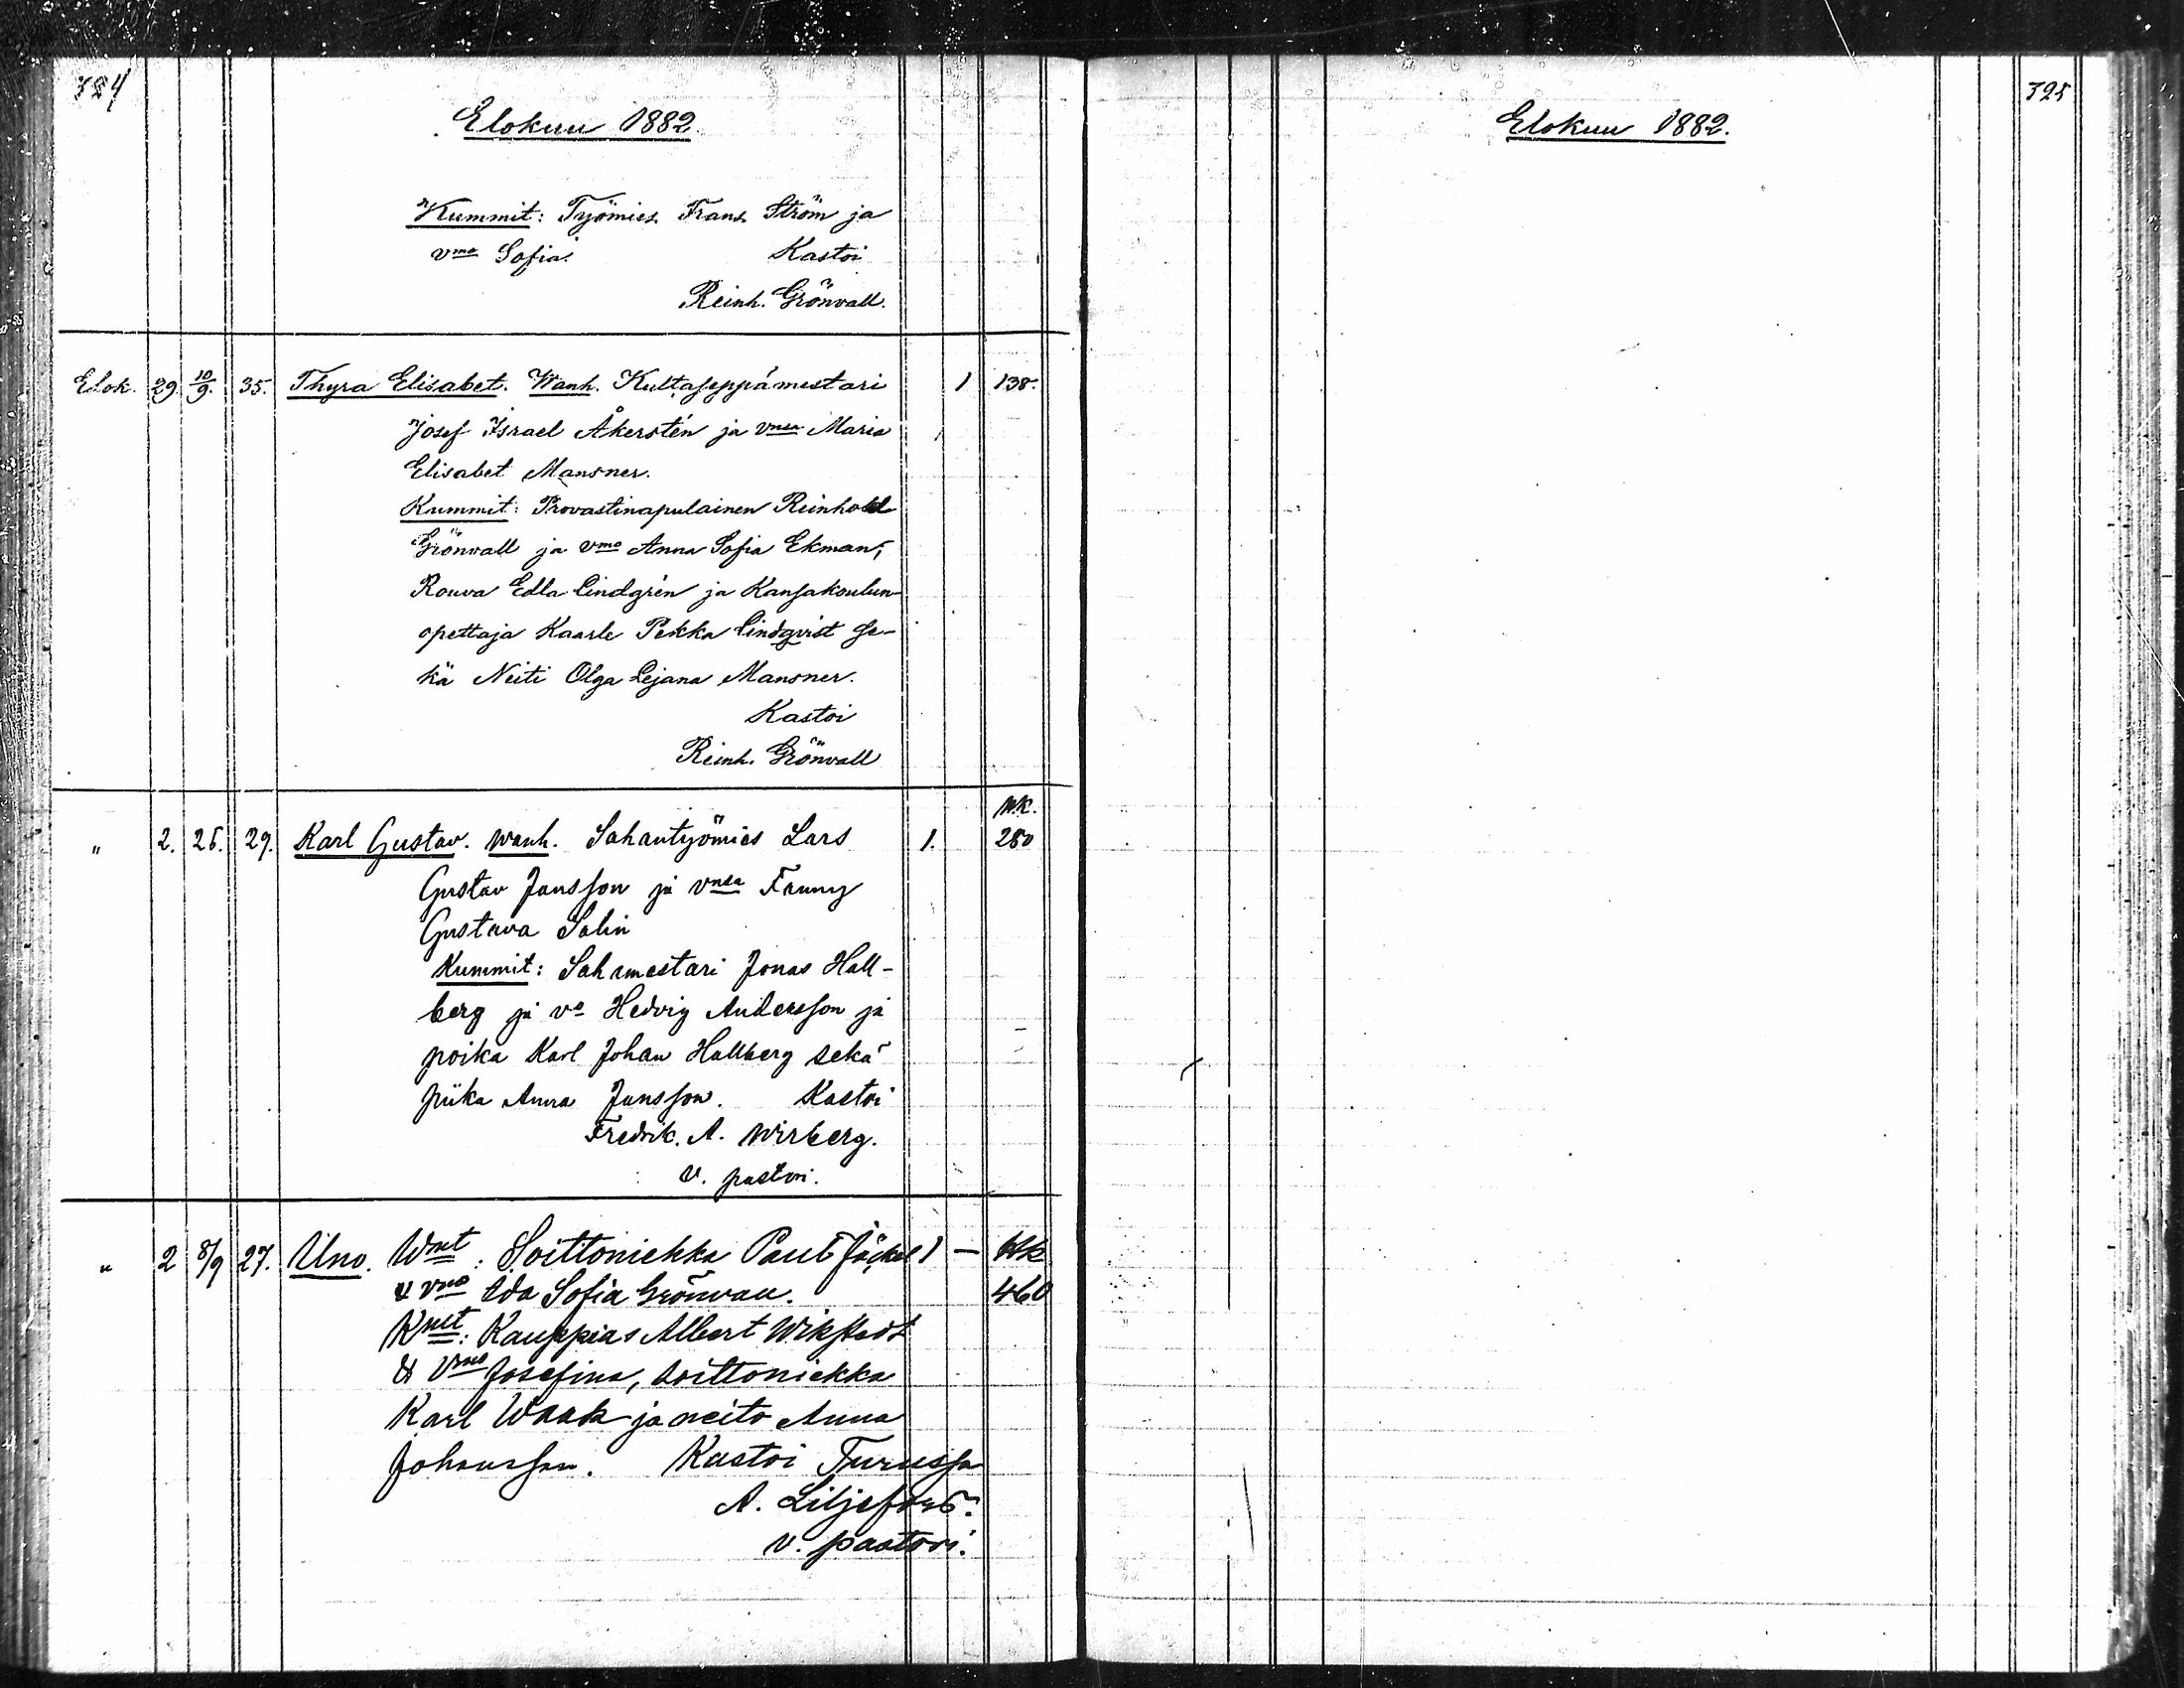 324
Elokuu 1882.
Kummit: Työmies Frans Ström ja
vmo Sofia. Kastoi
Reinh. Grönvall.
Elok. 29. 10/9. 35. Thyra Elisabet. Wanh. Kultaseppämestari 1 138.
Josef Israel Åkerstén ja vnsa Maria
Elisabet Mansner.
Kummit: Provastinapulainen Reinhold
Grönvall ja vmo Anna Sofia Ekman,
Rouva Edla Lindgrén ja Kansakoulun-
opettaja Kaarle Pekka Lindqvist se-
kä Neiti Olga Lejana Mansner.
Kastoi
Reinh. Grönvall
" 2. 25. 29. Karl Gustav. Wanh. Sahantyömies Lars 1. Wk. 280
Gustav Jansson ja vnsa Fanny
Gustava Salin
Kummit: Sahamestari Jonas Hall-
berg ja vo Hedvig Andersson ja
poika Karl Johan Hallberg sekä
piika Anna Jansson. Kastoi
Fredrik. A. Wirberg.
v. pastori.
" 2 8/9 27. Uno. Wmt: Soittoniekka Paul Jäckel 1 — Wk
& vmo Ida Sofia Grönvall. 460
Kmit: Kauppias Albert Wikstedt
& Vmo Josefina, soittoniekka
Karl Waak ja neito Anna
Johansson. Kastoi Turussa
A. Liljefors.
v. pastori.
Elokuu 1882.
325